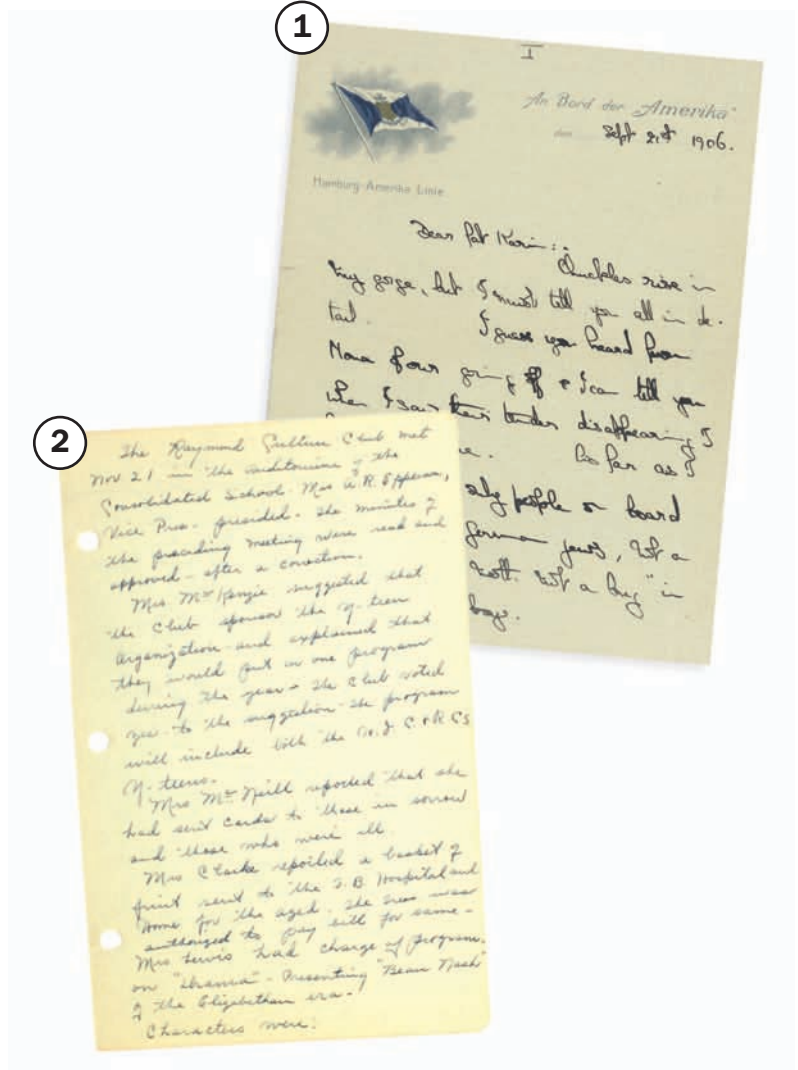 1
An Bord der „Amerika“
den
Sept 21st 1906.
Hamburg-Amerika Linie.
Dear Pat Karin:.
Chuckles rise in
my gorge, but I must tell you all in de-
tail. I guess you heard from
Mona four going off & I can tell you
when I saw their tender disappearing, I
e. As far as I
only people on board
German jews, not a
not a bug" in
2
The Raymond Culture Club met
Nov 21 in the auditorium of the
Consolidated School. Mrs A.R.
Vice Pres. presided. The minutes of
the preceding meeting were read and
approved - after a correction.
Mrs. McKenzie suggested that
the Club sponsor the Y-teen
organization and explained that
they would put in one program
during the year - The Club voted
yes to the suggestion - The program
will include both the &
Y-teens.
Mrs McNeill reported that she
had sent cards to those in sorrow
and those who were ill.
Mrs Clarke reported a basket of
fruit sent to the T.B. Hospital and
Home for the aged. The Treas was
authorized to pay bill for same -
Mrs Lewis had charge of program.
on "Drama" - Presenting "Beau Nash"
of the Elizabethan era -
Characters were: